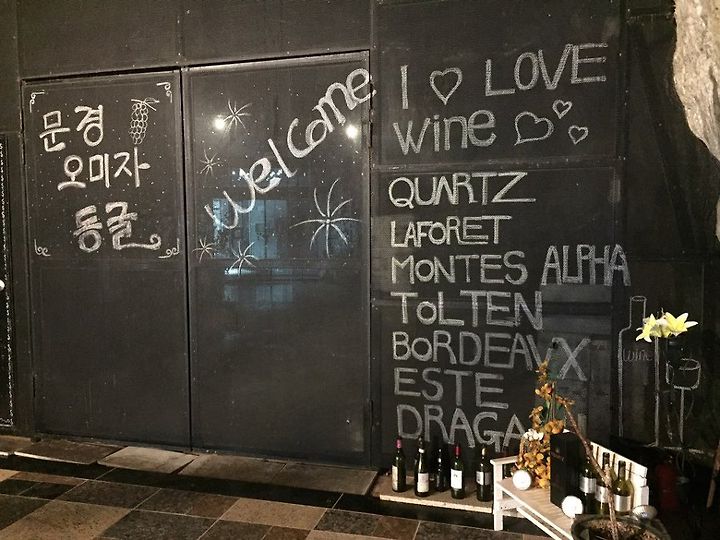 문경
오미자
동굴
welcome
I ♡ LOVE
wine
QUARTZ
LAFORET
MONTES ALPHA
TOLTEN
BORDEAUX
ESTE
DRAGA
wine